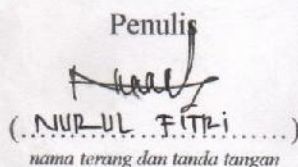 Penulis
(.NURUL FITRI............)
nama terang dan tanda tangan